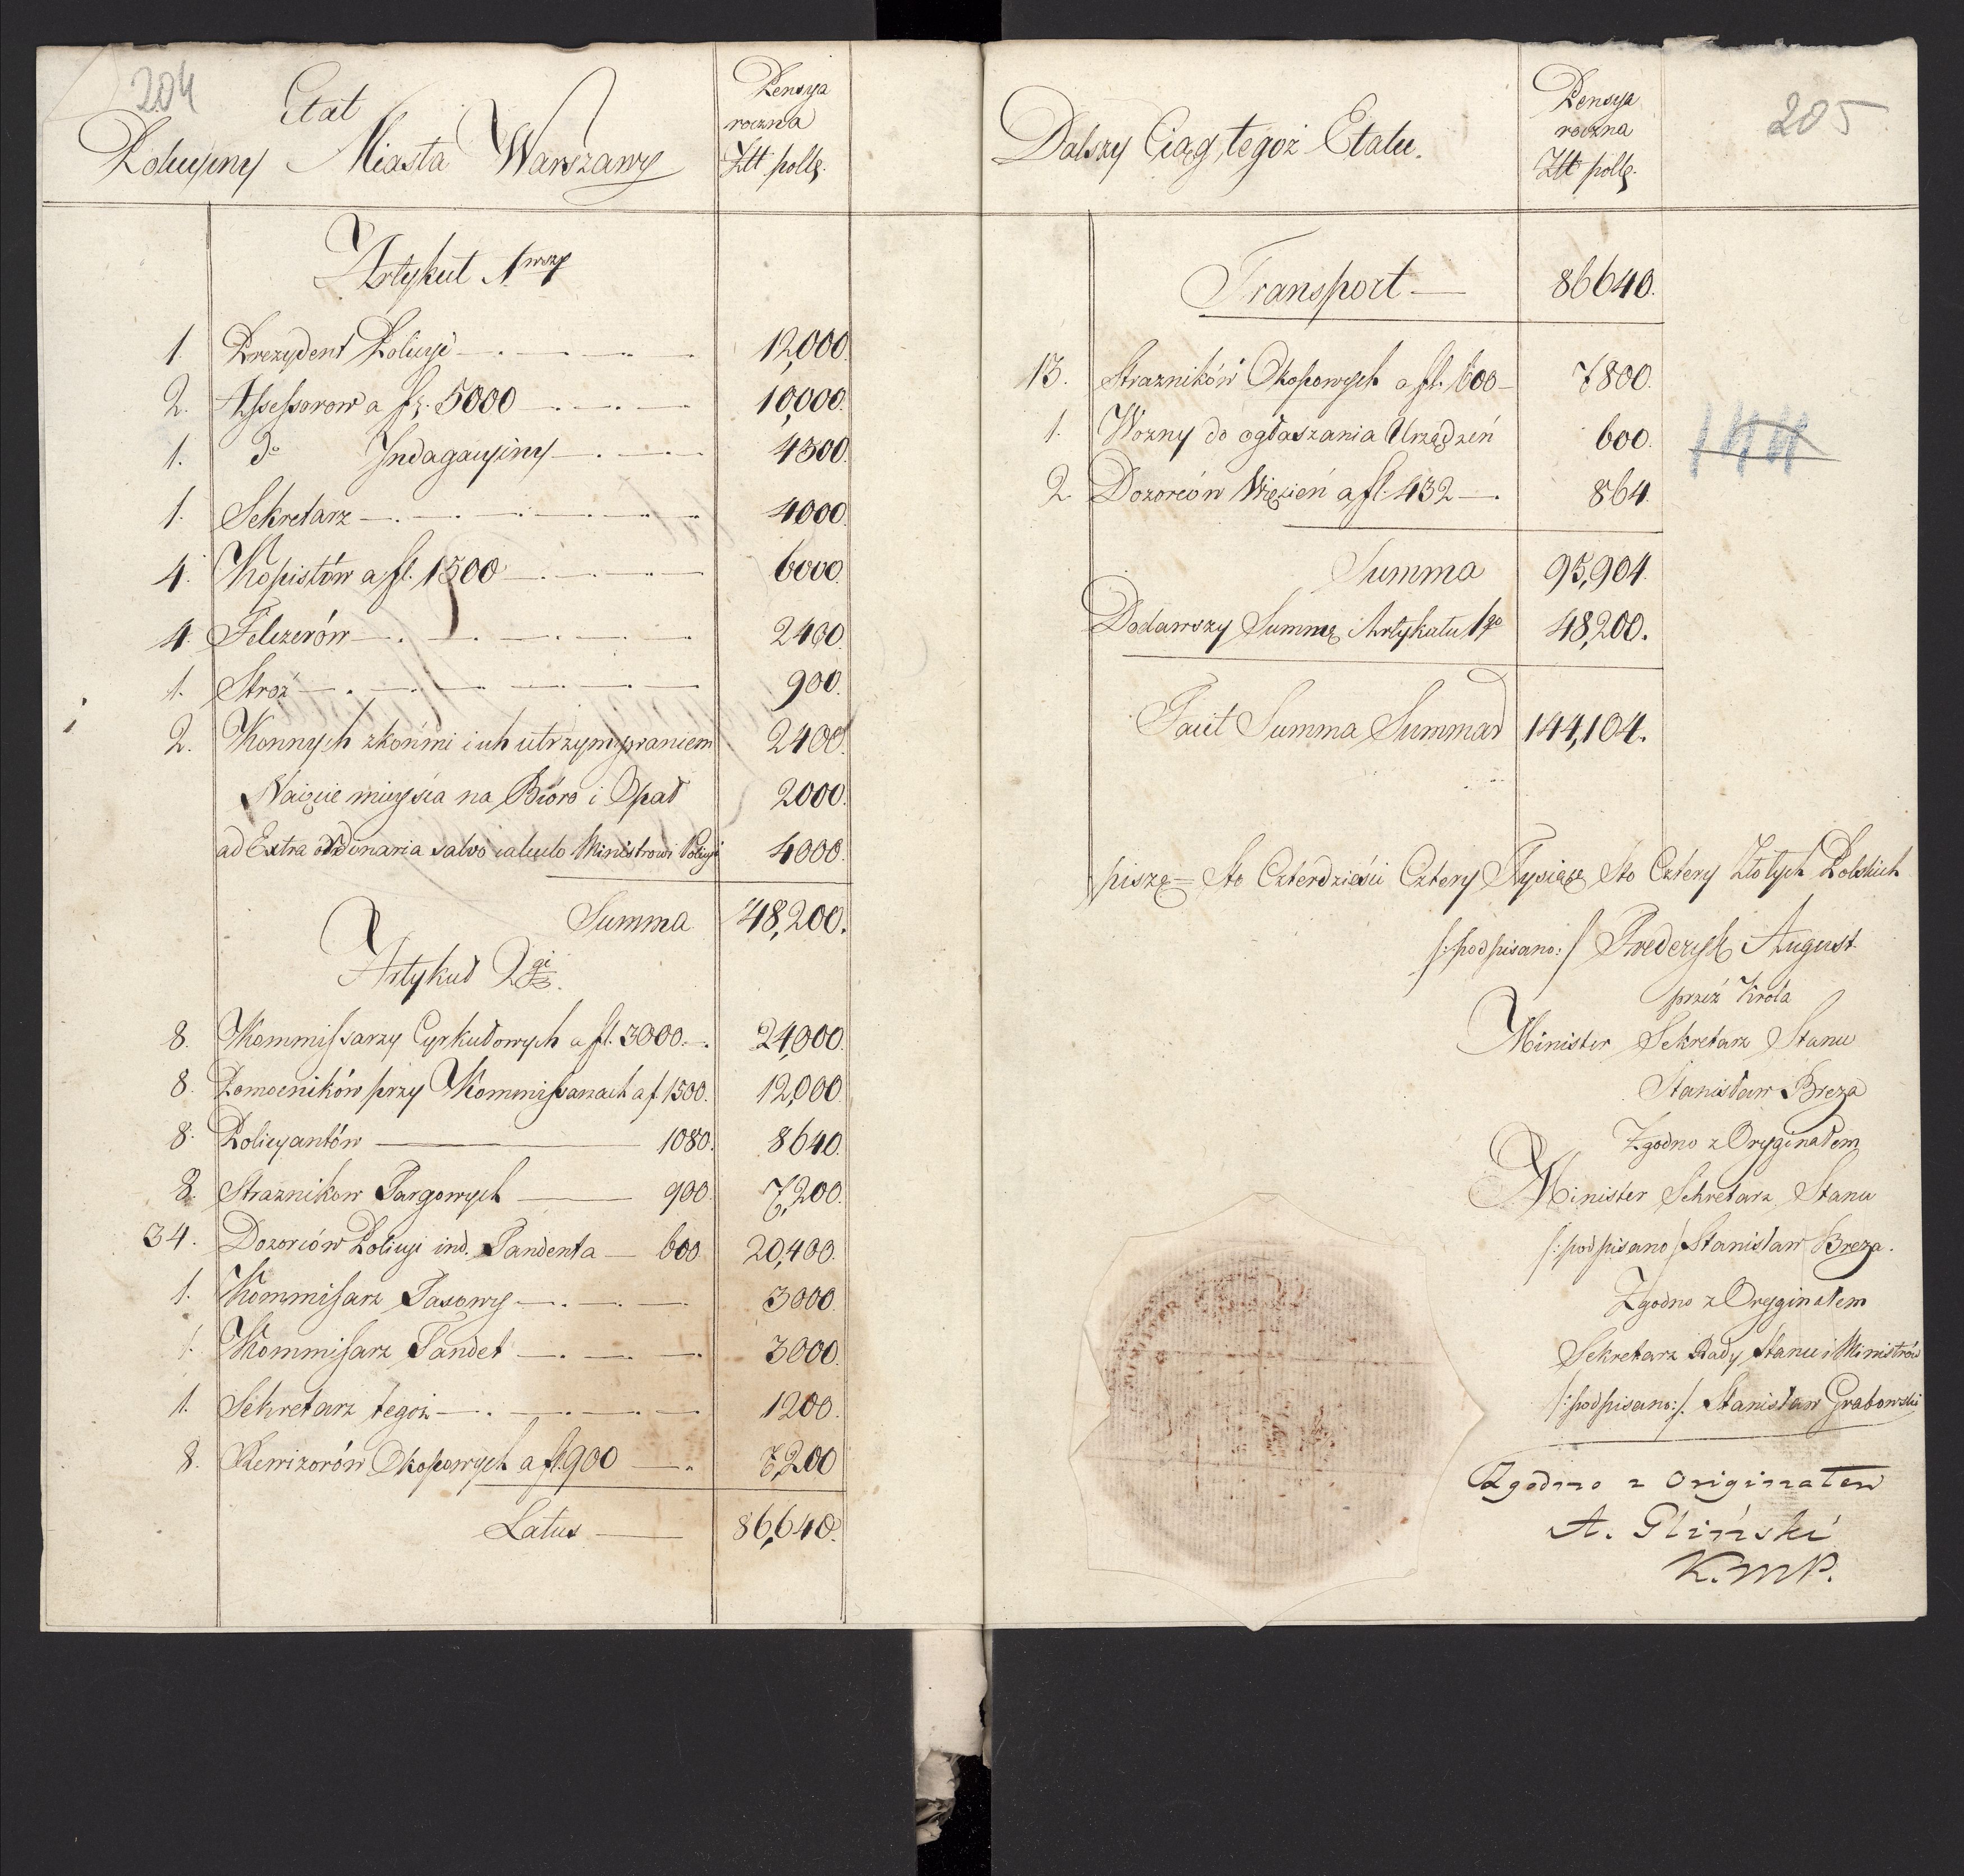 204
Etat
Policyiny Miasta Warszawy
Pensya
roczna
Złt pollę.
Artykuł 1wszy
1 Prezydent Policyi 12,000.
2. Assessorow a fl. 5000 10,000.
1. do Indagacyiny 4500.
1. Sekretarz 4000.
4. Kopistów a fl. 1500 6000.
4. Felczerów 2400.
1. Stroż 900.
2. Konnych z końmi i ich utrzymywaniem 2400.
Naięcie mieysca na Bióro i Opał 2000.
ad Extra ordinaria salvo calculo Ministrowi Policyi 4000.
Summa 48,200.
Artykuł 2gi.
8. Kommissarzy Cyrkułowych a fl. 3000. 24,000.
8. Pomocników przy Kommissarzach a f. 1500. 12,000.
8. Policyantów 1080. 8640.
8. Strażnikow Targowych 900. 7,200.
34. Dozorców Policyi ind. Tandenta 600 20,400.
1. Kommissarz Taxowy 3000.
1. Kommissarz Tandet 3000.
1. Sekretarz tegoż 1200.
8. Rewizorów Okopowych a fl. 900 7,200
Latus 86,640.
205
Dalszy Ciąg tegoż Etatu.
Pensya
roczna
Złt pollę.
Transport 86640.
13. Strażników Okopowych a fl. 600 7800.
1. Wozny do ogłaszania Urządzeń 600.
2. Dozorców Więzień a fl. 432 864.
144
Summa 95,904.
Dodawszy Summę Artykułu 1go 48,200.
Facit Summa Summar 144,104.
piszę = Sto Czterdzieści Cztery Tysiące Sto Cztery Złotych Polskich
/: podpisano :/ Frederyk August
przez Króla
Minister Sekretarz Stanu
Stanisław Breza
Zgodno z Oryginałem
Minister Sekretarz Stanu
/: podpisano / Stanisław Breza.
Zgodno z Oryginałem
Sekretarz Rady Stanu i Ministrów
/: podpisano :/. Stanisław Grabowski
Zgodno z Originałem
A. Gliński
K.M.P.